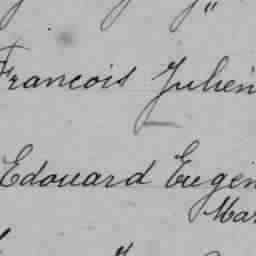 Francois Julien
Edouard Eugen
Mar